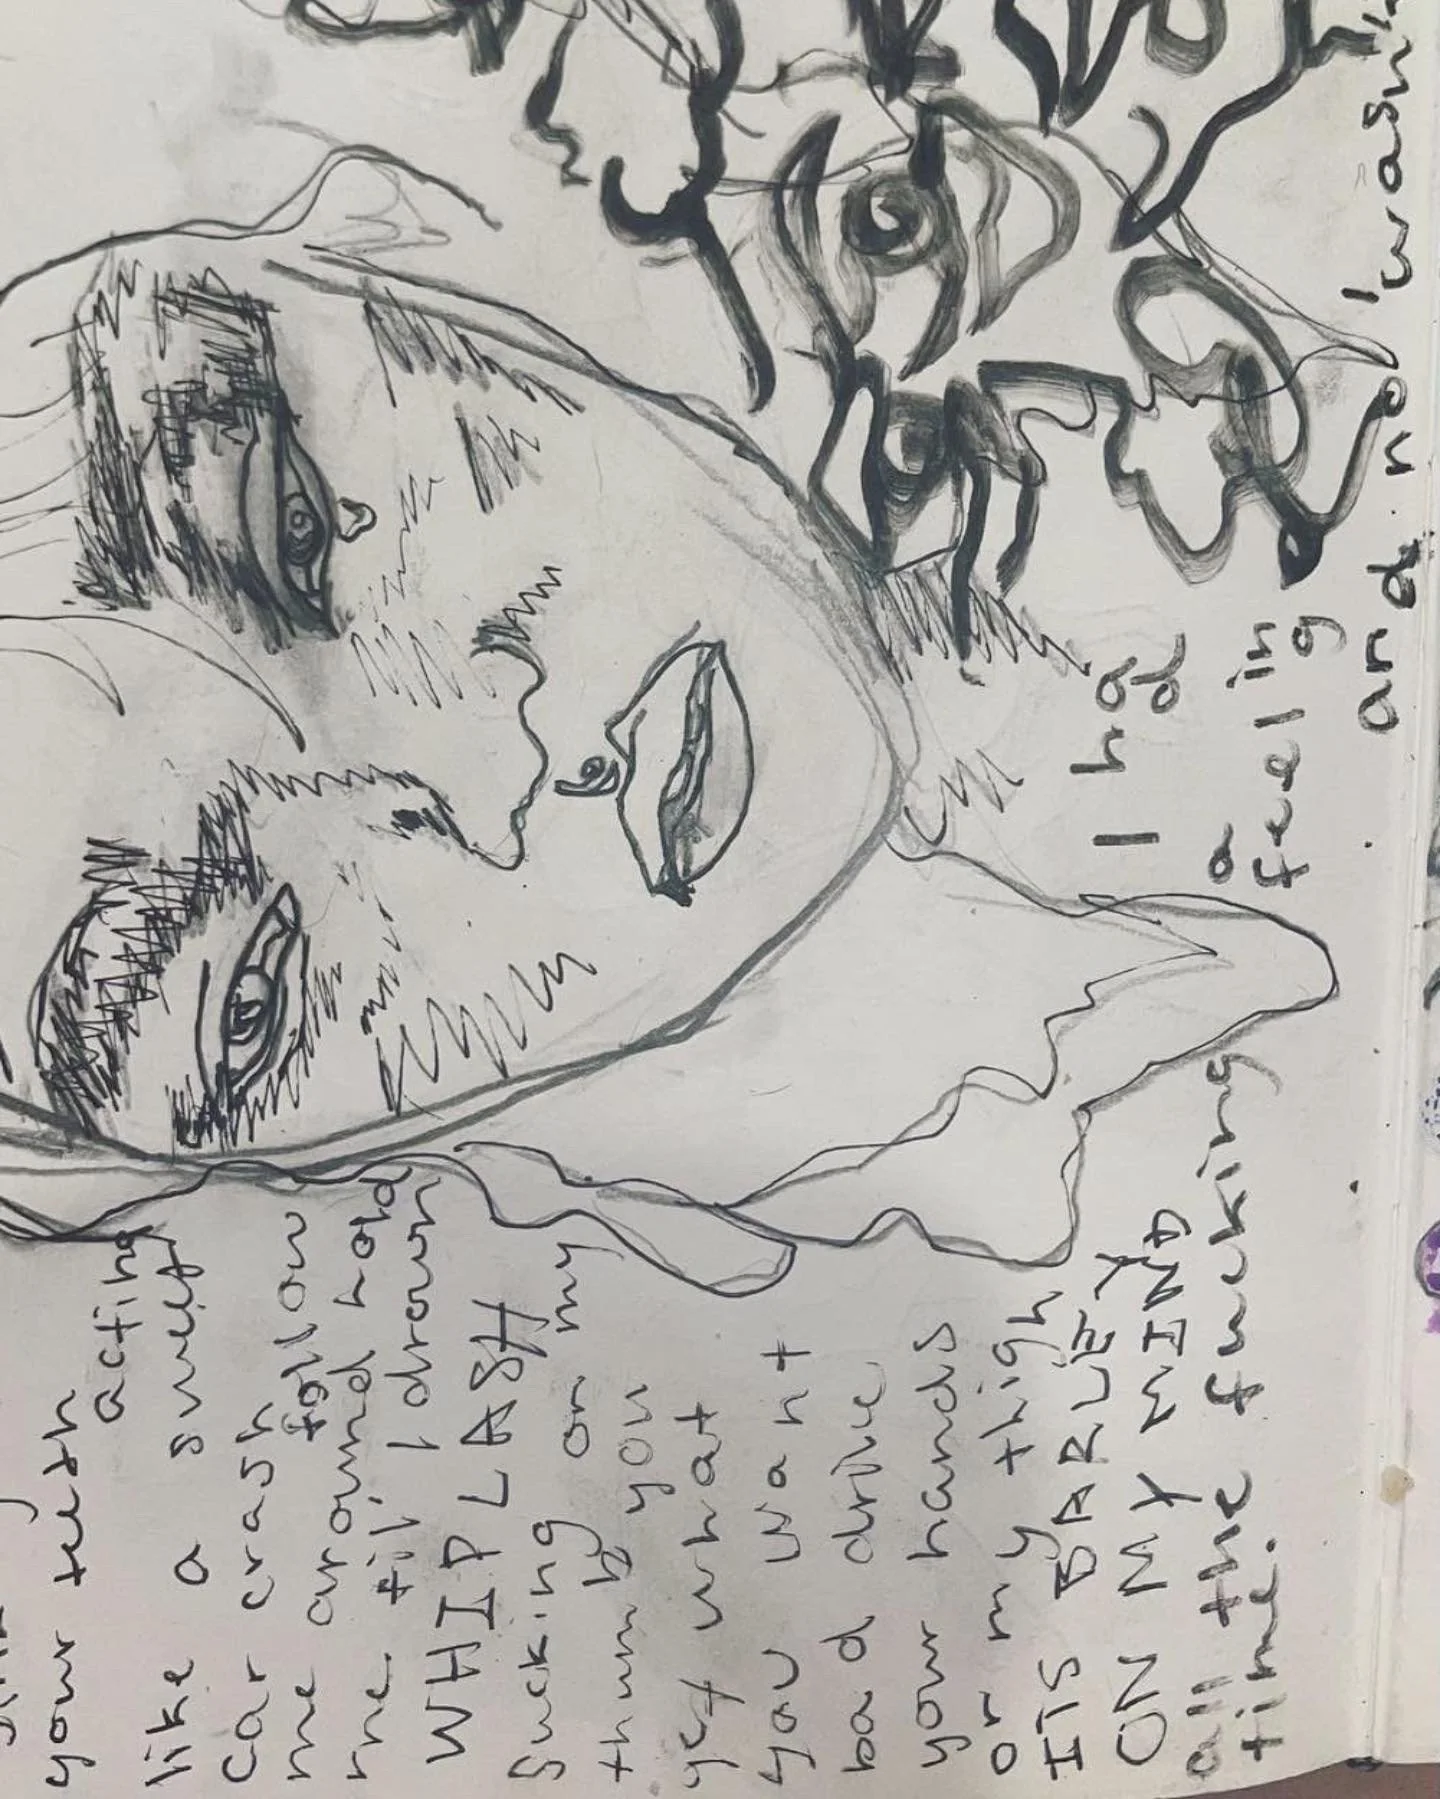 your teeth
acting
like a sweet
car crash
me around follow
me til' I drown hold
WHIPLASH
Sucking on my
thumb you
get what
you want
bad drive
your hands
on my thigh
ITS BARLEY
ON MY MIND
all the fucking
time.
I had
a feeling
and no I wasn't